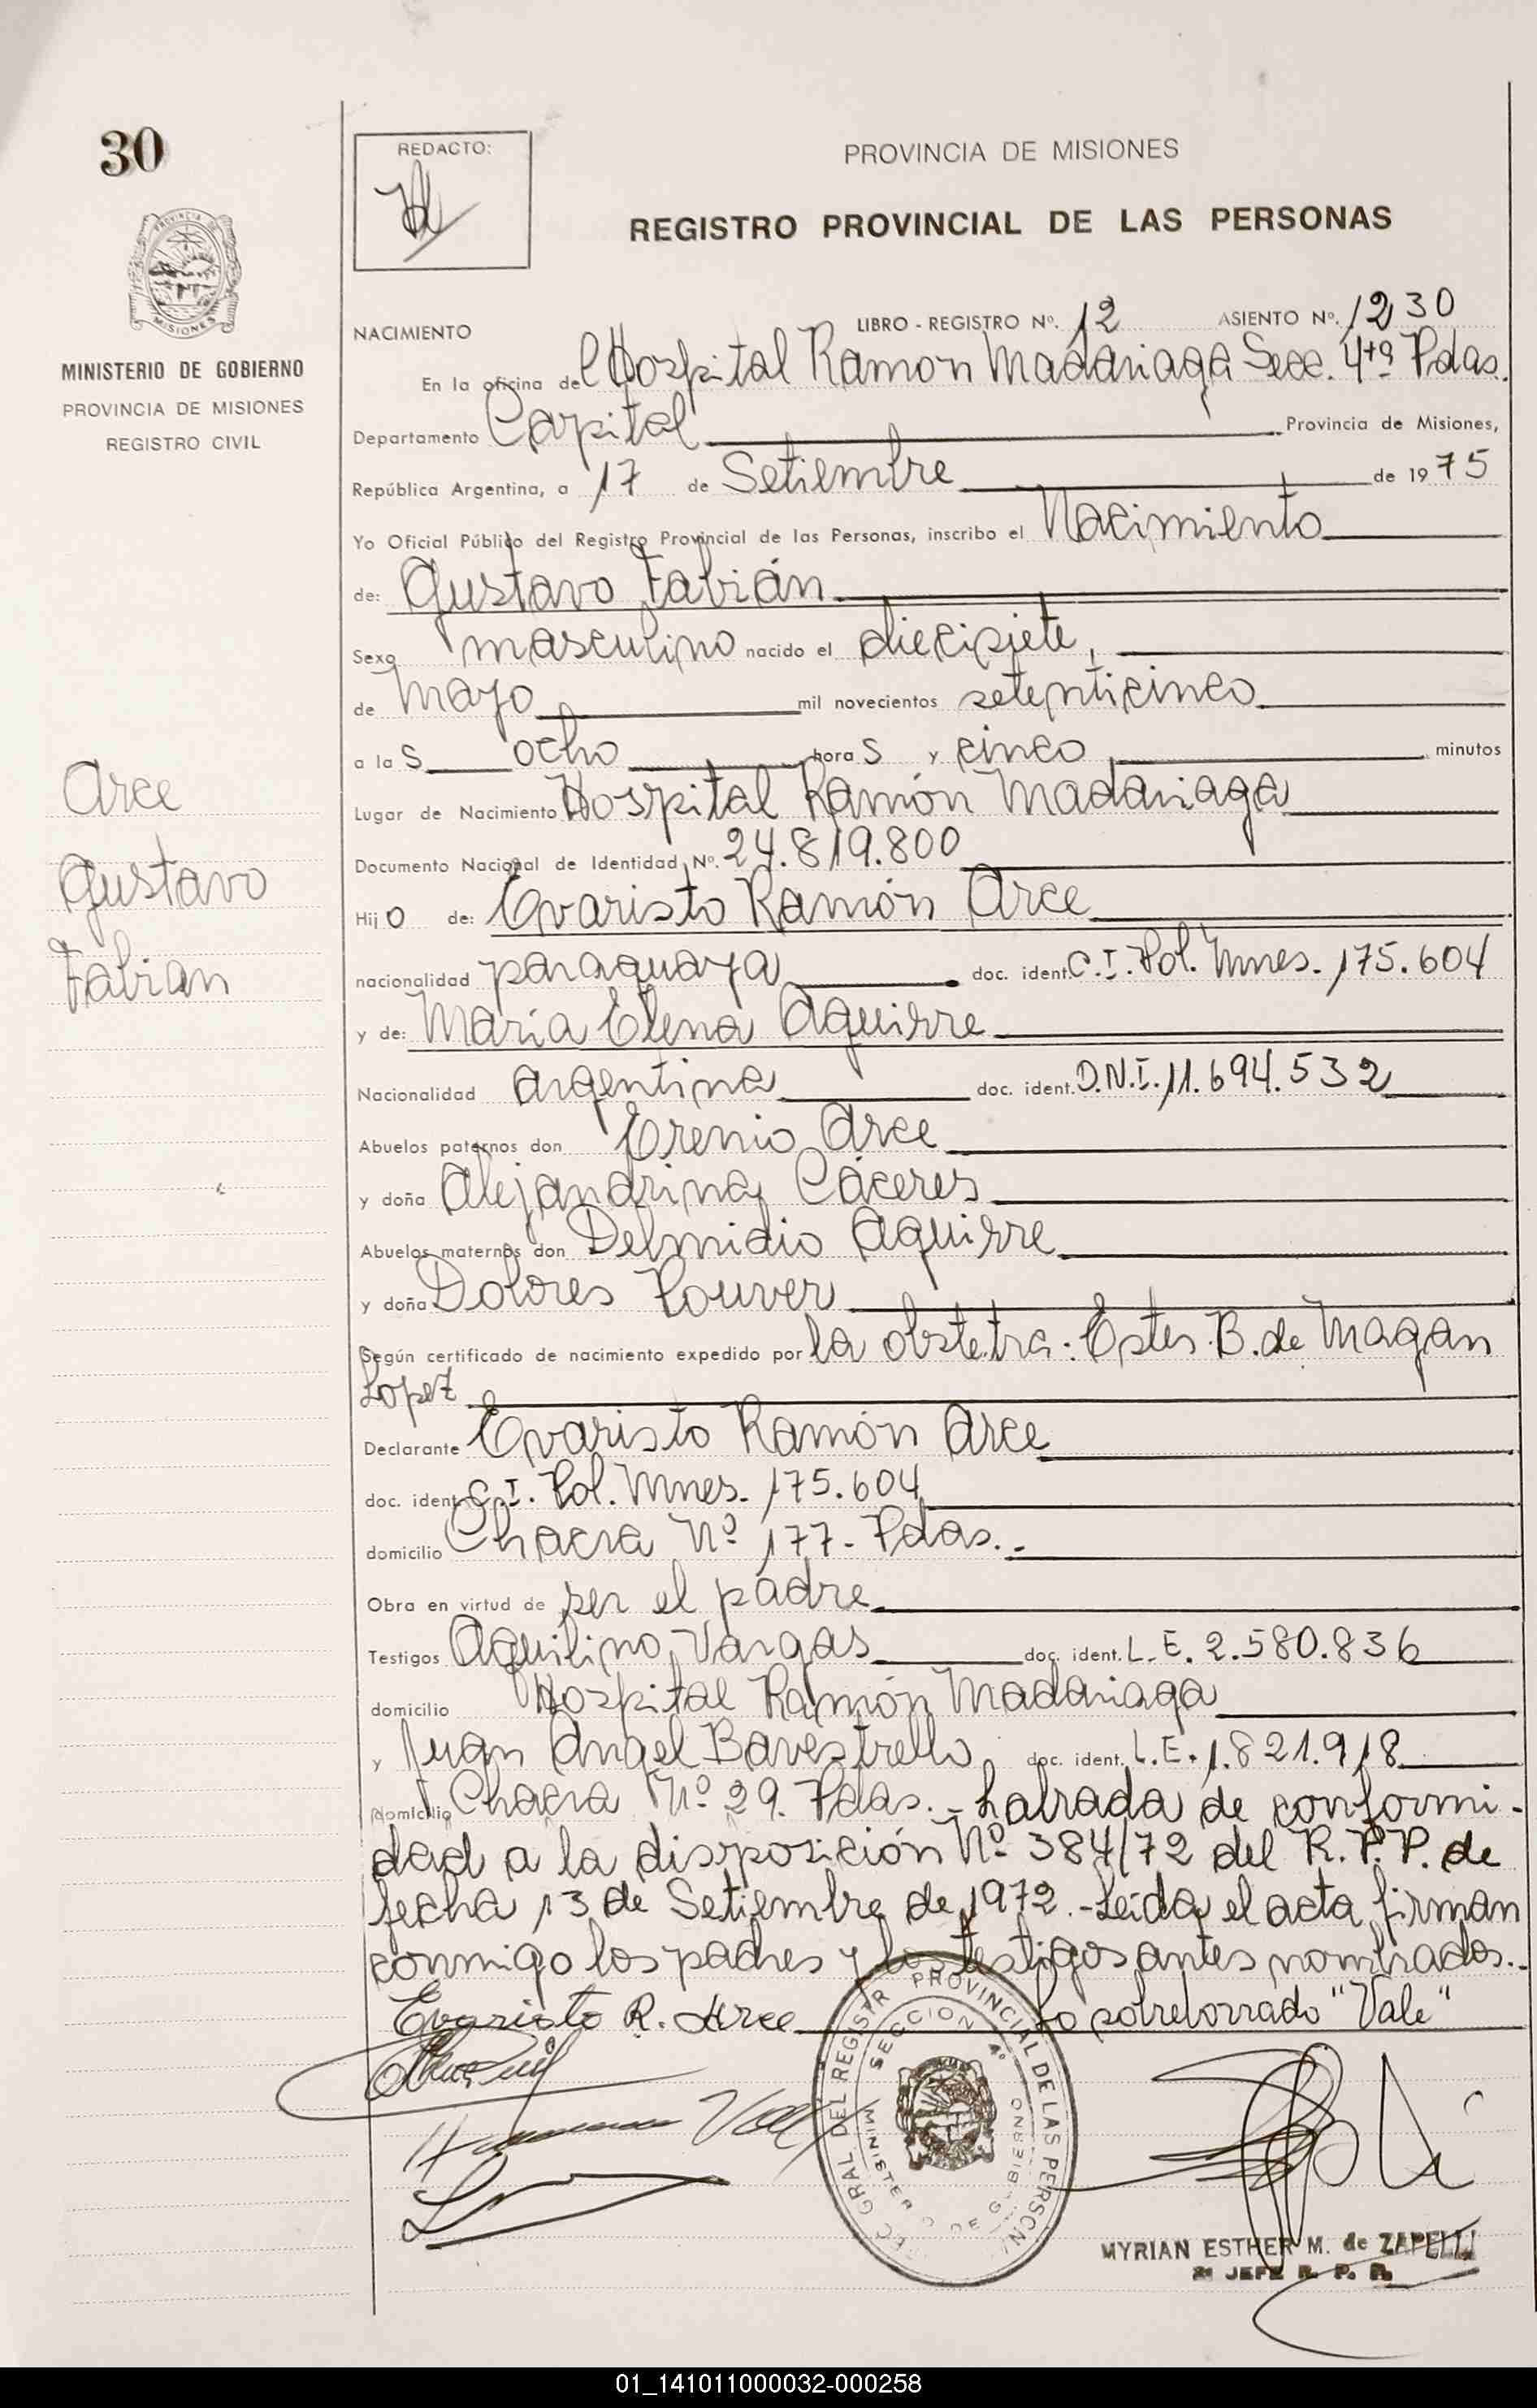 30
REDACTO:
PROVINCIA DE MISIONES
REGISTRO PROVINCIAL DE LAS PERSONAS
PROVINCIA DE
MISIONES
MINISTERIO DE GOBIERNO
PROVINCIA DE MISIONES
REGISTRO CIVIL
Arce
Gustavo
Fabian
LIBRO - REGISTRO Nº. 12 ASIENTO Nº. 1230
NACIMIENTO
En la oficina del Hospital Ramon Madariaga Secc. 4ta Pdas.
Departamento Capital Provincia de Misiones,
República Argentina, a 17 de Setiembre de 1975
Yo Oficial Público del Registro Provincial de las Personas, inscribo el Nacimiento
de: Gustavo Fabián
Sexo masculino nacido el diecisiete,
de Mayo mil novecientos setenticinco
a las ocho horas y cinco minutos
Lugar de Nacimiento Hospital Ramón Madariaga
Documento Nacional de Identidad Nº. 24.819.800
Hijo de: Evaristo Ramón Arce
nacionalidad paraguaya doc. ident. C.I. Pol. Mnes. 175.604
y de: María Elena Aguirre
Nacionalidad argentina doc. ident. D.N.I. 11.694.532
Abuelos paternos don Erenio Arce
y doña Alejandrina Cáceres
Abuelos maternos don Delmidio Aguirre
y doña Dolores Pouver
Según certificado de nacimiento expedido por la obstetra: Ester B. de Magan
Lopez
Declarante Evaristo Ramón Arce
doc. ident. C.I. Pol. Mnes. 175.604
domicilio Chacra Nº 177- Pdas.-
Obra en virtud de ser el padre
Testigos Aquilino Vargas doc. ident. L.E. 2.580.836
domicilio Hospital Ramón Madariaga
y Juan Angel Bavestrello doc. ident. L.E. 1.821.918
domicilio Chacra Nº 29. Pdas.- Labrada de conformi-
dad a la disposición Nº 384/72 del R.P.P. de
fecha 13 de Setiembre de 1972.- Leida el acta firman
conmigo los padres y los testigos antes nombrados.-
Evaristo R. Arce Lo sobreborrado "Vale"
GRAL DEL REGISTR PROVINCIAL DE LAS PERSON
SECCION 4º
MINISTERIO DE GOBIERNO
MYRIAN ESTHER M. de ZAPELLI
JEFE R. P. P.
01_141011000032-000258